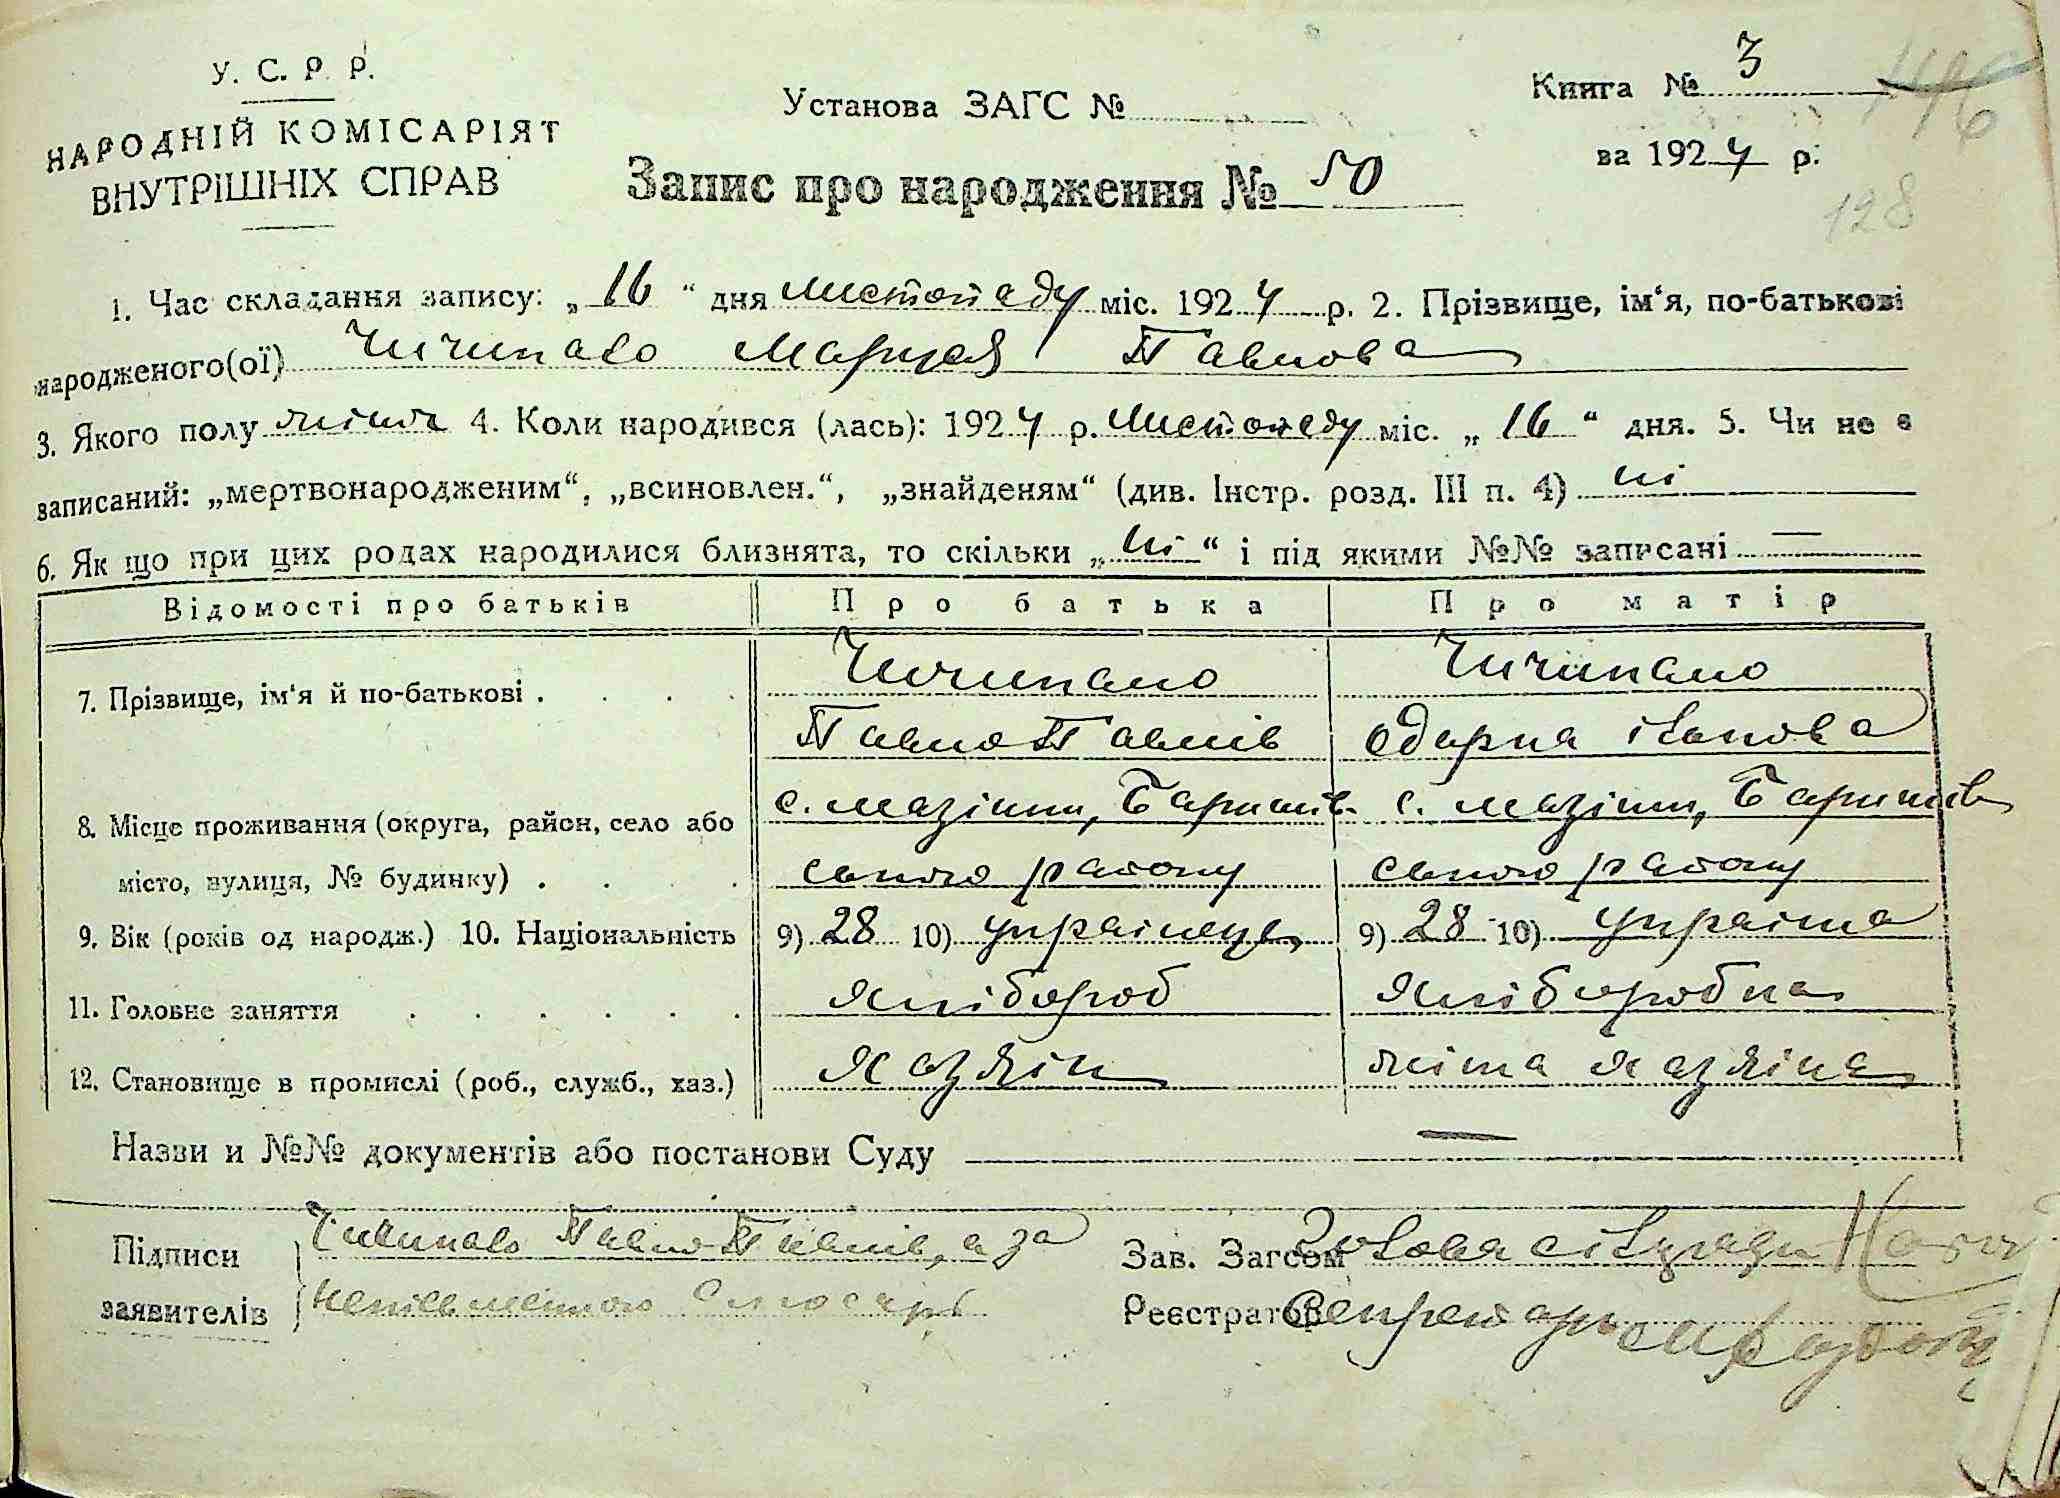 У. С. Р. Р.
НАРОДНІЙ КОМІСАРІЯТ
ВНУТРІШНІХ СПРАВ
Установа ЗАГС №
Книга № 3
146
за 1924 р.
Запис про народження № 50
128
1. Час складання запису: „16“ дня листопаду міс. 1924 р. 2. Прізвище, ім‘я, по-батькові
народженого(ої) Чичикало Марися Павлова
3. Якого полу жіноч 4. Коли народився (лась): 1924 р. Листопаду міс. „16“ дня. 5. Чи не є
записаний: „мертвонародженим“, „всиновлен.“, „знайденям“ (див. Інстр. розд. III п. 4) ні
6. Як що при цих родах народилися близнята, то скільки „ні“ і під якими №№ записані —
Відомості про батьків Про батька Про матір
7. Прізвище, ім‘я й по-батькові . . . . Чичикало Чичикало
Павло Павлів Одарка івнова
8. Місце проживання (округа, район, село або с. мазінки, Баришів- с. мазінки, Баришів
місто, вулиця, № будинку) . . . . ського району ського району
9. Вік (років од народж.) 10. Національність 9) 28 10) українець 9) 28 10) україна
11. Головне заняття . . . . . . хлібороб хліборобка
12. Становище в промислі (роб., служб., хаз.) хазяїн жінка хазяіна
Назви и №№ документів або постанови Суду —
Підписи Чичикало Павло Павлів, а за
заявителів неписьменного
Зав. Загсом Голова сільради
Реєстратор Секретар